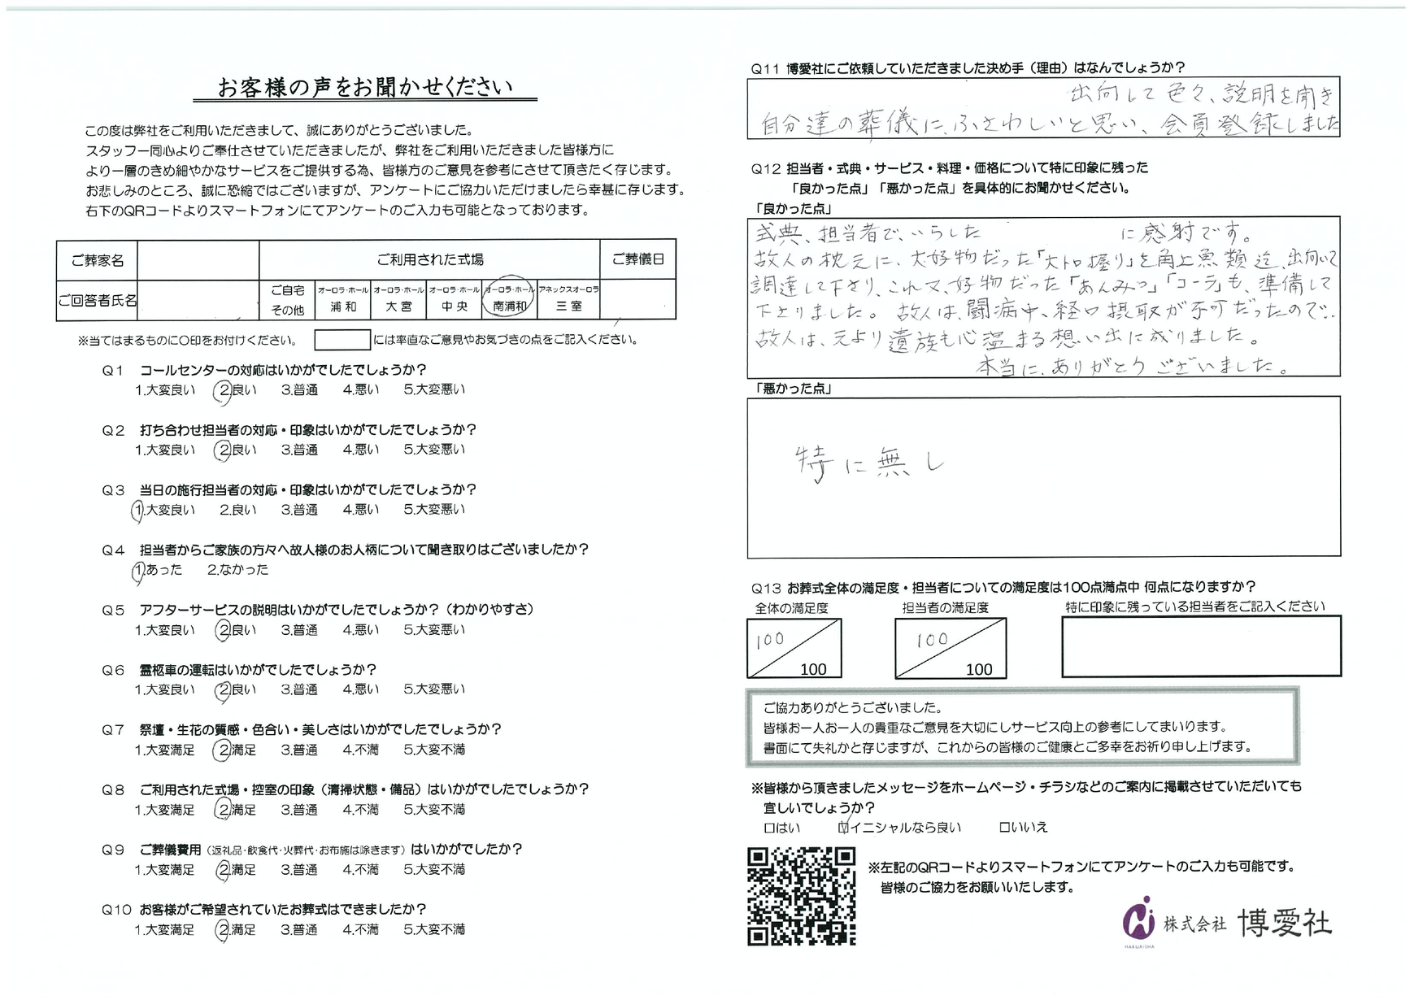 お客様の声をお聞かせください
この度は弊社をご利用いただきまして、誠にありがとうございました。
スタッフ一同心よりご奉仕させていただきましたが、弊社をご利用いただきました皆様方に
より一層のきめ細やかなサービスをご提供する為、皆様方のご意見を参考にさせて頂きたく存じます。
お悲しみのところ、誠に恐縮ではございますが、アンケートにご協力いただけましたら幸甚に存じます。
右下のQRコードよりスマートフォンにてアンケートのご入力も可能となっております。
ご葬家名 ご利用された式場 ご葬儀日
ご回答者氏名 ご自宅 その他 オーロラ・ホール 浦和 オーロラ・ホール 大宮 オーロラ・ホール 中央 オーロラ・ホール 南浦和 アネックスオーロラ 三室
※当てはまるものに〇印をお付けください。 には率直なご意見やお気づきの点をご記入ください。
Q1 コールセンターの対応はいかがでしたでしょうか?
1.大変良い 2.良い 3.普通 4.悪い 5.大変悪い
Q2 打ち合わせ担当者の対応・印象はいかがでしたでしょうか?
1.大変良い 2.良い 3.普通 4.悪い 5.大変悪い
Q3 当日の施行担当者の対応・印象はいかがでしたでしょうか?
1.大変良い 2.良い 3.普通 4.悪い 5.大変悪い
Q4 担当者からご家族の方々へ故人様のお人柄について聞き取りはございましたか?
1.あった 2.なかった
Q5 アフターサービスの説明はいかがでしたでしょうか?(わかりやすさ)
1.大変良い 2.良い 3.普通 4.悪い 5.大変悪い
Q6 霊柩車の運転はいかがでしたでしょうか?
1.大変良い 2.良い 3.普通 4.悪い 5.大変悪い
Q7 祭壇・生花の質感・色合い・美しさはいかがでしたでしょうか?
1.大変満足 2.満足 3.普通 4.不満 5.大変不満
Q8 ご利用された式場・控室の印象(清掃状態・備品)はいかがでしたでしょうか?
1.大変満足 2.満足 3.普通 4.不満 5.大変不満
Q9 ご葬儀費用(返礼品・飲食代・火葬代・お布施は除きます)はいかがでしたか?
1.大変満足 2.満足 3.普通 4.不満 5.大変不満
Q10 お客様がご希望されていたお葬式はできましたか?
1.大変満足 2.満足 3.普通 4.不満 5.大変不満
Q11 博愛社にご依頼していただきました決め手(理由)はなんでしょうか?
出向して色々、説明を聞き
自分達の葬儀に、ふさわしいと思い、会員登録しました
Q12 担当者・式典・サービス・料理・価格について特に印象に残った
「良かった点」「悪かった点」を具体的にお聞かせください。
「良かった点」
式典、担当者で、いらした に感射です。
故人の枕元に、大好物だった「大トロ握り」を角上魚類迄、出向いて
調達して下さり、これ又、好物だった「あんみつ」「コーラ」も、準備して
下さりました。故人は、闘病中、経口摂取が不可だったので、
故人は、元より遺族も心温まる想い出に成りました。
本当に、ありがとうございました。
「悪かった点」
特に無し
Q13 お葬式全体の満足度・担当者についての満足度は100点満点中 何点になりますか?
全体の満足度 担当者の満足度 特に印象に残っている担当者をご記入ください
100 100
100 100
ご協力ありがとうございました。
皆様お一人お一人の貴重なご意見を大切にしサービス向上の参考にしてまいります。
書面にて失礼かと存じますが、これからの皆様のご健康とご多幸をお祈り申し上げます。
※皆様から頂きましたメッセージをホームページ・チラシなどのご案内に掲載させていただいても
宜しいでしょうか?
□はい ☑イニシャルなら良い □いいえ
※左記のQRコードよりスマートフォンにてアンケートのご入力も可能です。
皆様のご協力をお願いいたします。
HAKUAISHA 株式会社 博愛社